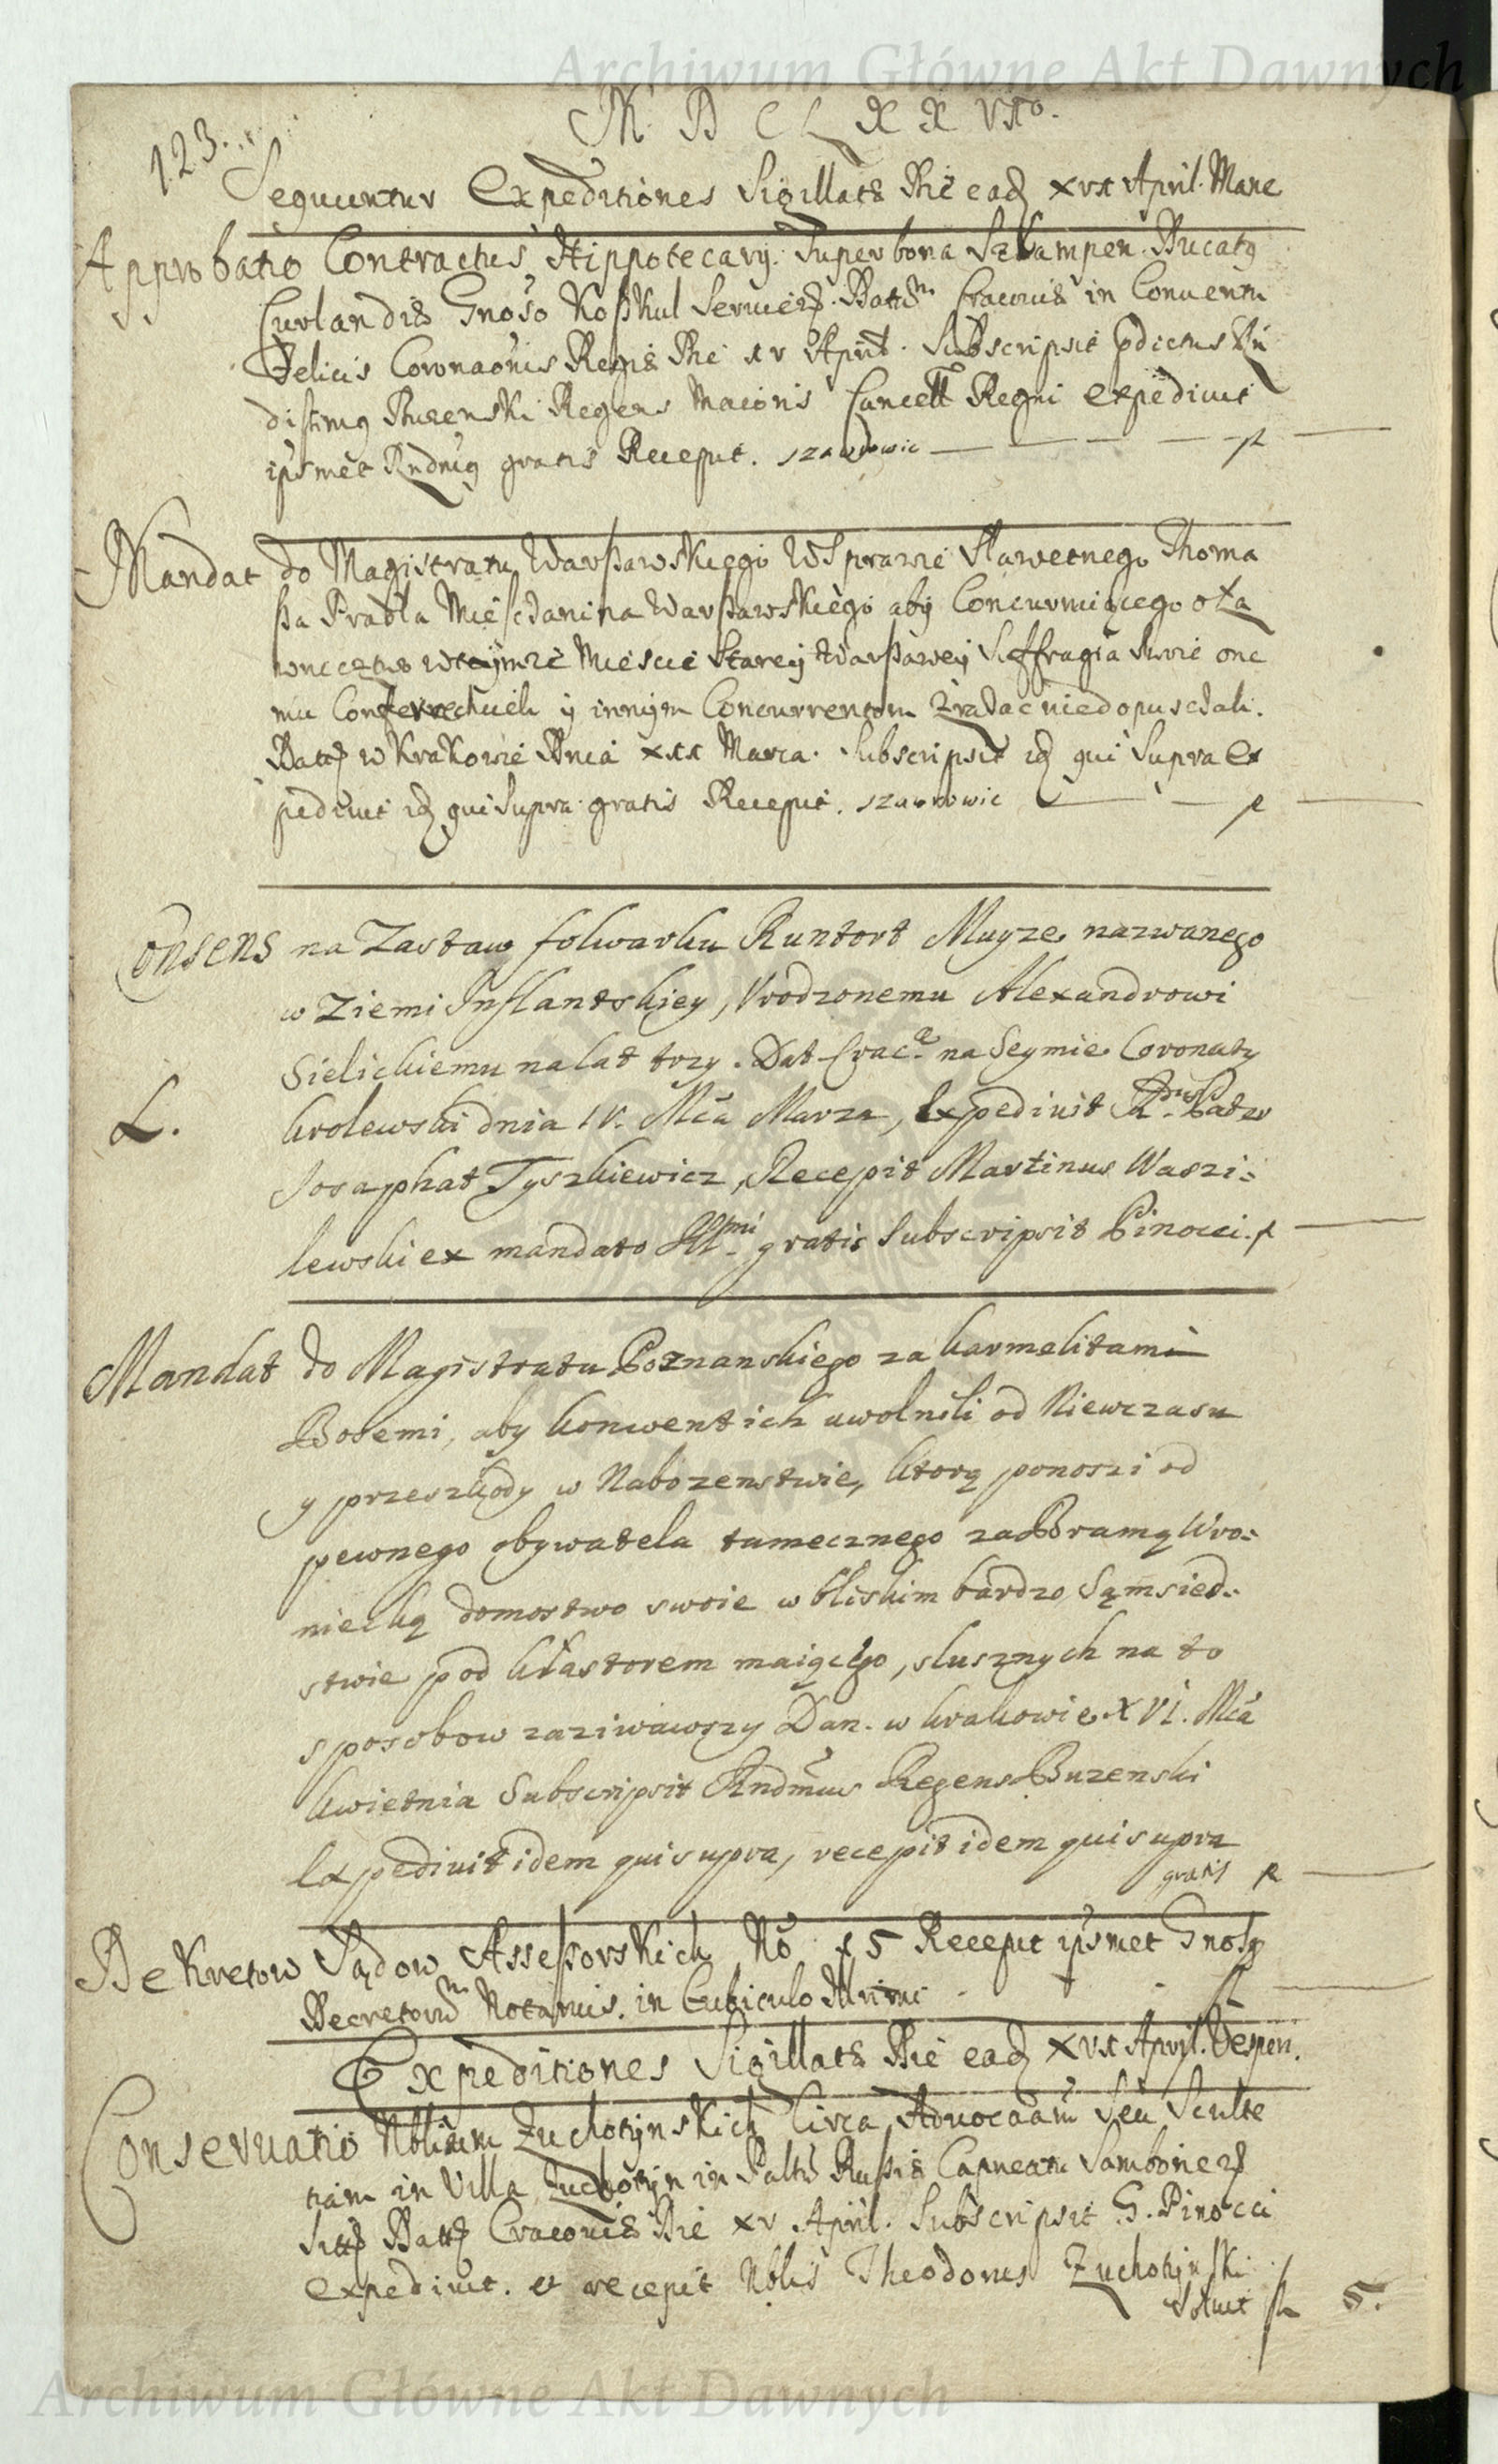 Archiwum Główne Akt Dawnych
M. D C L X X VIo.
123.
Sequuntur Expeditiones Sigillatæ Die ead XVI April. Mane
Approbatio Contractus Hippotecarÿ. Super bona Szlampen. Ducatq
Curlandiæ Gnoso Koßkul Seruien. Datt Cracouiæ in Conuentu
Felicis Coronaonis Regiæ Die XV April. Subscripsit pdictus Rn
dissimq Buzenski Regens Maioris Cancell Regni expediuit
ipsmet Rndmq gratis Recepit. Szawlowic
Mandat do Magistratu Warßawskiego W Sprawie Sławetnego Thoma
ßa Pradła Mieſczanina Warßawskiego aby Concurruiącego o Ła
wnicztwo w teyże Mieście Starey Warßawey Suffragia swoie one
mu Conferowali y innym Concurrentom zrażać nie dopusczali.
Datt w Krakowie Dnia XXX Marca. Subscripsit id qui Supra Ex
pediuit id qui Supra gratis Recepit. Szawlowic
Consens na Zastaw folwarku Runtort Muyze nazwanego
w Ziemi Inflantskiey, Vrodzonemu Alexandrowi
Sielickiemu na lat trzy. Dat Crac. na Seymie Coronaty
L.
krolewski dnia IV. Mca Marza, Expediuit Patr
Josaphat Tyszkiewicz, Recepit Martinus Waszi:
lewski ex mandato Illmi gratis Subscripsit Pinocci.
Mandat do Magistratu Poznanskiego za karmelitami
Bosemi, aby konwent ich uwolnili od Niewczasu
y przeszkody w Nabozenstwie, ktorą ponoszi od
pewnego obywatela tamecznego za Bramą Wro:
niecką domostwo swoie w bliskim bardzo Sąmsied:
stwie pod klastorem maiącego, slusznych na to
sposobow zaziwawszy Dan. w krakowie XVI. Mca
kwietnia Subscripsit Rndmus Regens Buzenski
Expediuit idem qui supra, recepit idem qui supra
gratis
Dekretow Sądow Asseßorskich No 5 Recepit ipsmet Gnosq
Decretorum Notarius. in Cubiculo Illrimi
Expeditiones Sigillatæ Die ead XVI April. Vesperi.
Conseruatio Nbilium Zuchotynskich Circa Aduocaam Seu Sculte
tiam in Villa Zuchotyn in Paltu Rußiæ Capneatu Samborien
Sitt Datt Cracouiæ Die XV April. Subscripsit G. Pinocci
expediuit. et recepit Nblis Theodorus Zuchotynski
Soluit 5.
Archiwum Główne Akt Dawnych